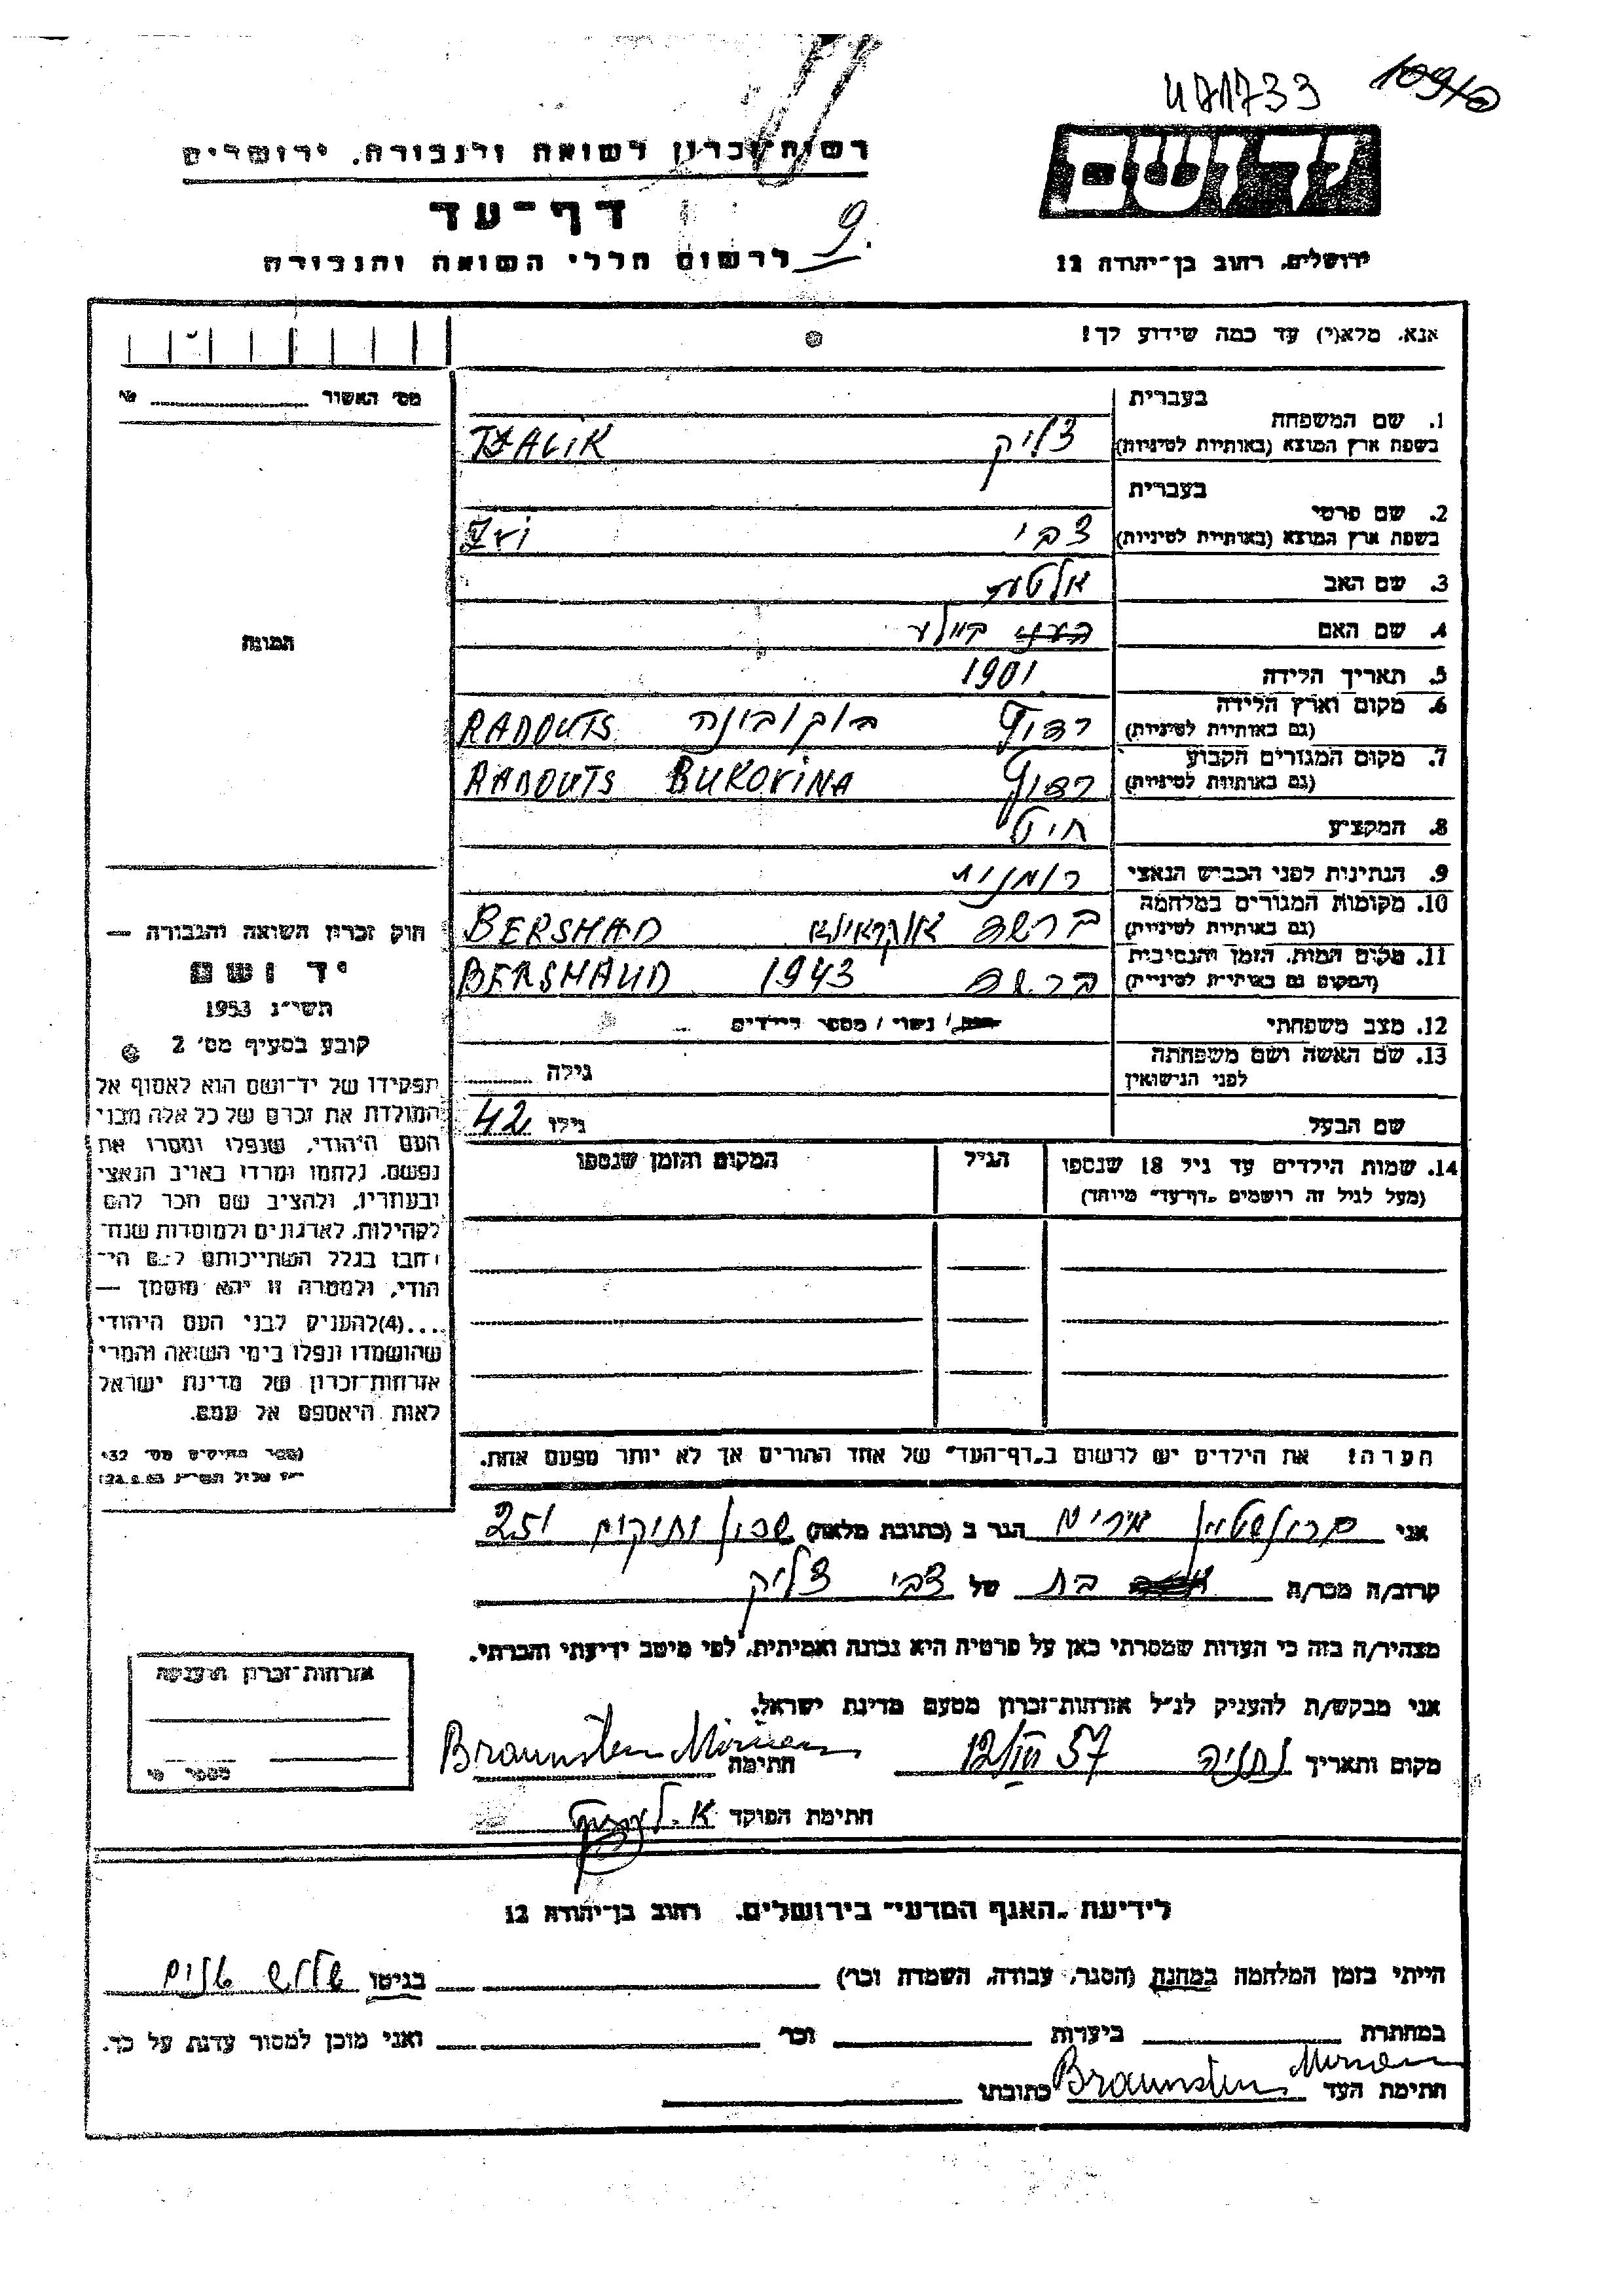 471733 109/0
יד ושם
ירושלים, רחוב בן־יהודה 12
רשות זכרון לשואה ולגבורה, ירושלים
דף־עד
9.
לרשום חללי השואה והגבורה
אנא, מלא(י) עד כמה שידוע לך!
מס׳ האשור
1. שם המשפחה
בעברית
בשפת ארץ המוצא (באותיות לטיניות)
צליק TZALIK
2. שם פרטי
בעברית
בשפת ארץ המוצא (באותיות לטיניות)
צבי Zvi
3. שם האב אלטער
4. שם האם בײלע
5. תאריך הלידה 1901
6. מקום וארץ הלידה
(גם באותיות לטיניות)
רדוץ בוקובינה RADOUTS
7. מקום המגורים הקבוע
(גם באותיות לטיניות)
רדוץ RADOUTS BUKOVINA
8. המקצוע חיט
9. הנתינות לפני הכבוש הנאצי רומנית
10. מקומות המגורים במלחמה
(גם באותיות לטיניות)
ברשד אוקראינא BERSHAD
11. מקום המות, הזמן והנסיבות
(המקום גם באותיות לטיניות)
ברשד 1943 BERSHAUD
12. מצב משפחתי
רווק / נשוי / מספר הילדים
13. שם האשה ושם משפחתה
לפני הנישואין
גילה
שם הבעל
גילו 42
14. שמות הילדים עד גיל 18 שנספו
(מעל לגיל זה רושמים „דף־עד״ מיוחד)
הגיל
המקום והזמן שנספו
הערה! את הילדים יש לרשום ב„דף־העד״ של אחד ההורים אך לא יותר מפעם אחת.
התמונה
חוק זכרון השואה והגבורה —
יד ושם
תשי״ג 1953
קובע בסעיף מס׳ 2
תפקידו של יד־ושם הוא לאסוף אל
המולדת את זכרם של כל אלה מבני
העם היהודי, שנפלו ומסרו את
נפשם, נלחמו ומרדו באויב הנאצי
ובעוזריו, ולהציב שם וזכר להם
לקהילות, לארגונים ולמוסדות שנח־
רבו בגלל השתייכותם לעם הי־
הודי, ולמטרה זו יהא מוסמך —
....(4) להעניק לבני העם היהודי
שהושמדו ונפלו בימי השואה והמרי
אזרחות־זכרון של מדינת ישראל
לאות היאספם אל עמם.
(ספר החוקים מס׳ 132
אלול תשי״ג 28.8.53)
אני ברונשטיין מרים הגר ב (כתובת מלאה) שכון ותיקים 251
קרוב/ה מכר/ה בת של צבי צליק
מצהיר/ה בזה כי העדות שמסרתי כאן על פרטיה היא נכונה ואמיתית, לפי מיטב ידיעתי והכרתי.
אני מבקש/ת להעניק לנ״ל אזרחות־זכרון מטעם מדינת ישראל.
מקום ותאריך נתניה 12/VII 57 חתימה Braunsten Miriam
חתימת הפוקד
אזרחות־זכרון הוענקה
מספר
לידיעת „האגף המדעי״ בירושלים, רחוב בן־יהודה 12
הייתי בזמן המלחמה במחנה (הסגר, עבודה, השמדה וכו׳) בגיטו שלוש שנים
במחתרת ביערות וכו׳ ואני מוכן למסור עדות על כך.
חתימת העד Braunsten Miriam כתובתו